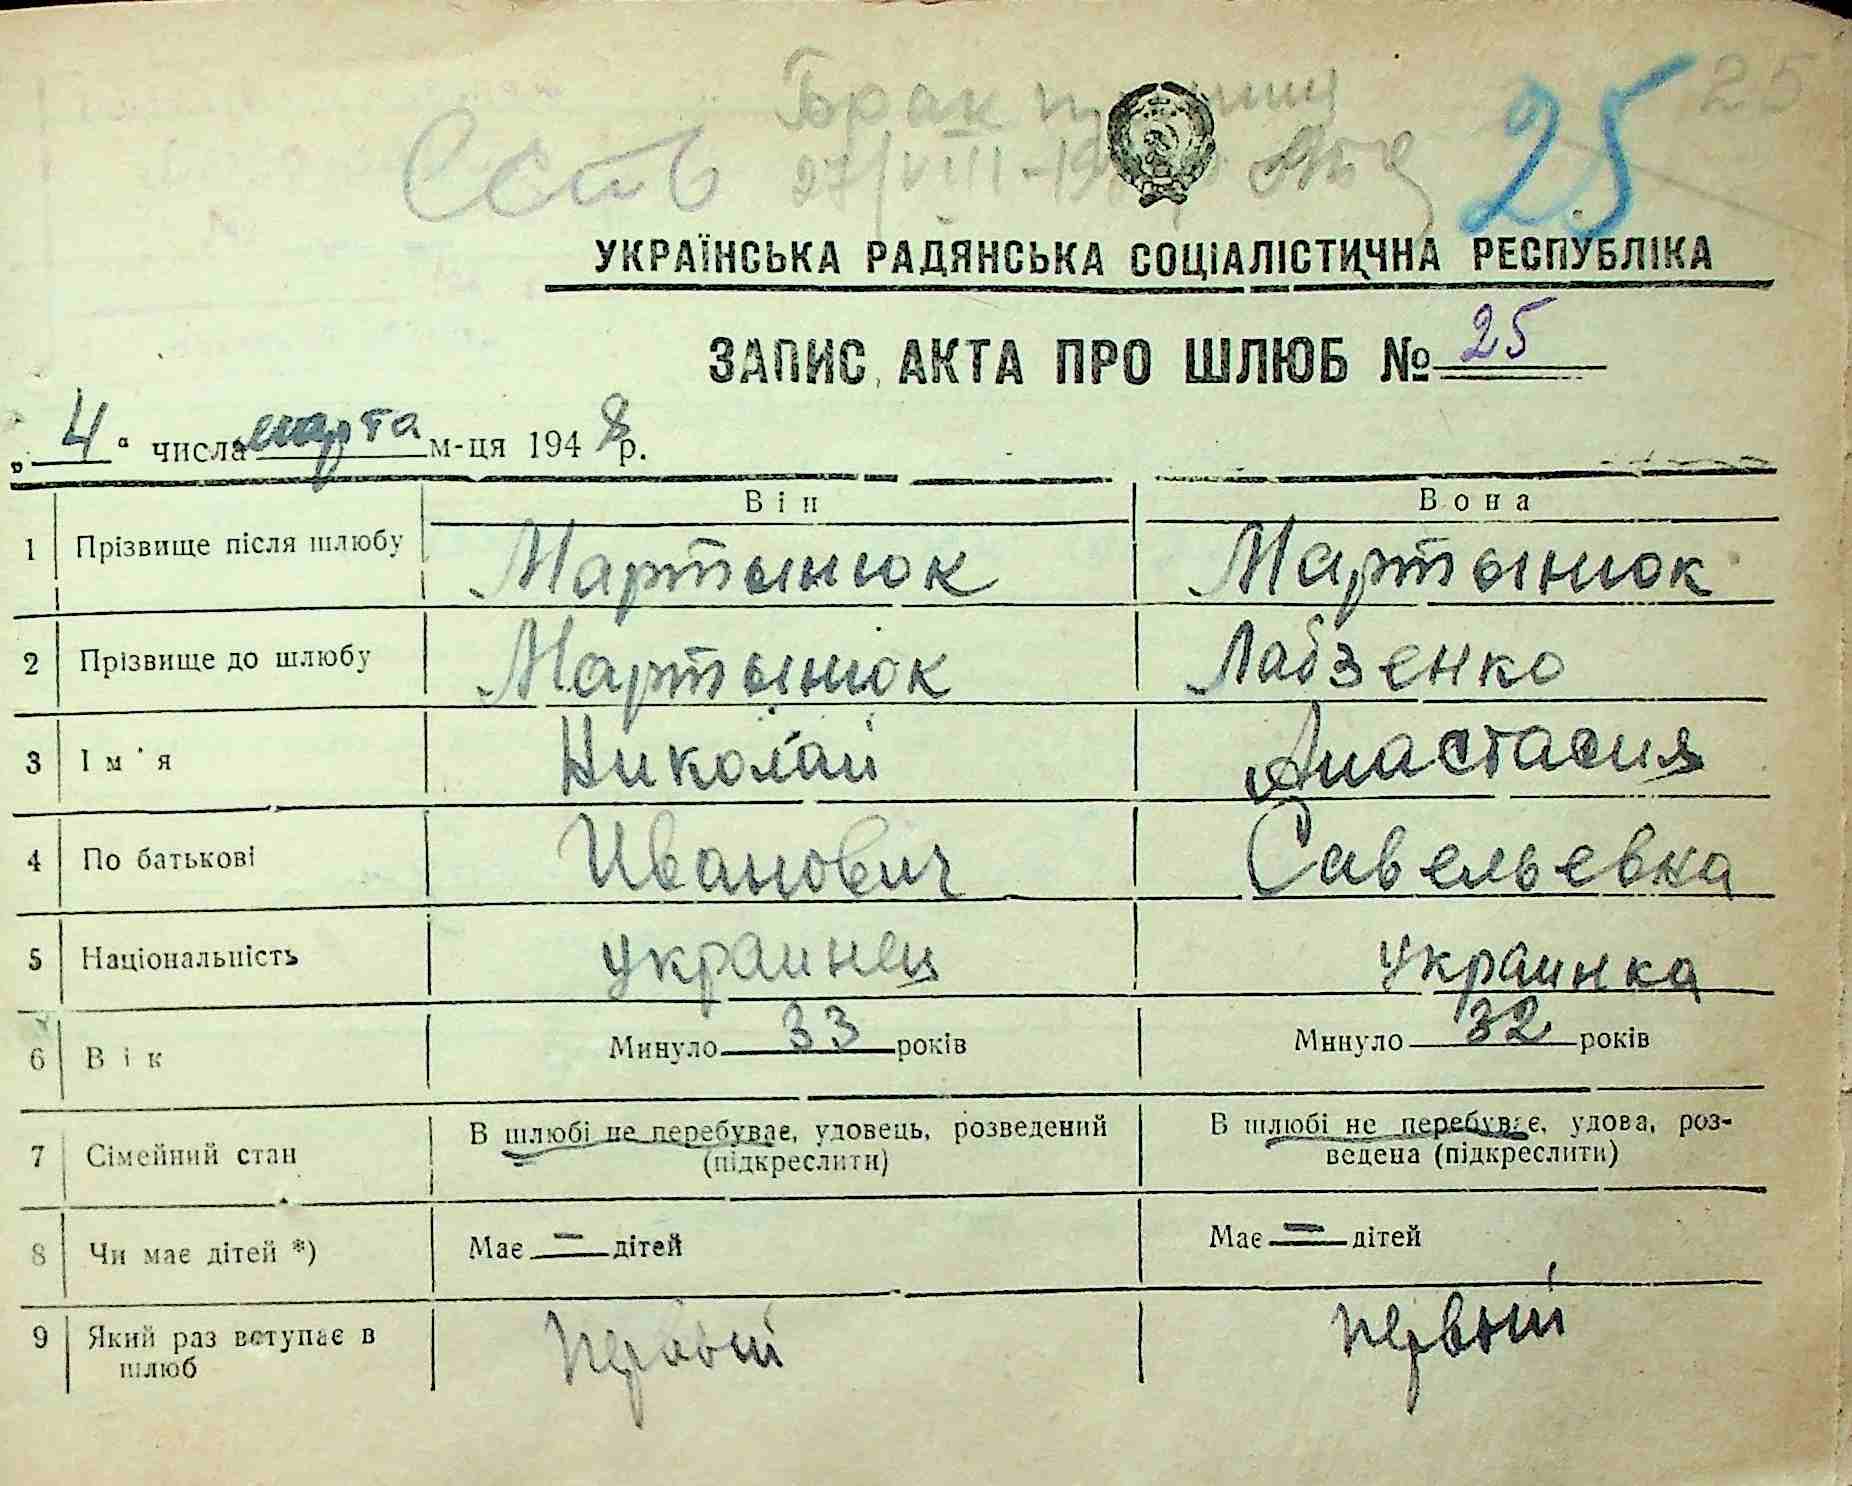 25
Брак
25
Есть
27/VIII-19
УКРАЇНСЬКА РАДЯНСЬКА СОЦІАЛІСТИЧНА РЕСПУБЛІКА
ЗАПИС АКТА ПРО ШЛЮБ № 25
„ 4 " числа марта м-ця 1948 р.
Він Вона
1 Прізвище після шлюбу Мартынюк Мартынюк
2 Прізвище до шлюбу Мартынюк Лабзенко
3 Ім'я Николай Анастасия
4 По батькові Иванович Савельевна
5 Національність украинец украинка
6 Вік Минуло 33 років Минуло 32 років
7 Сімейний стан В шлюбі не перебуває, удовець, розведений (підкреслити) В шлюбі не перебуває, удова, роз-
ведена (підкреслити)
8 Чи має дітей *) Має — дітей Має — дітей
9 Який раз вступає в
шлюб первый первый